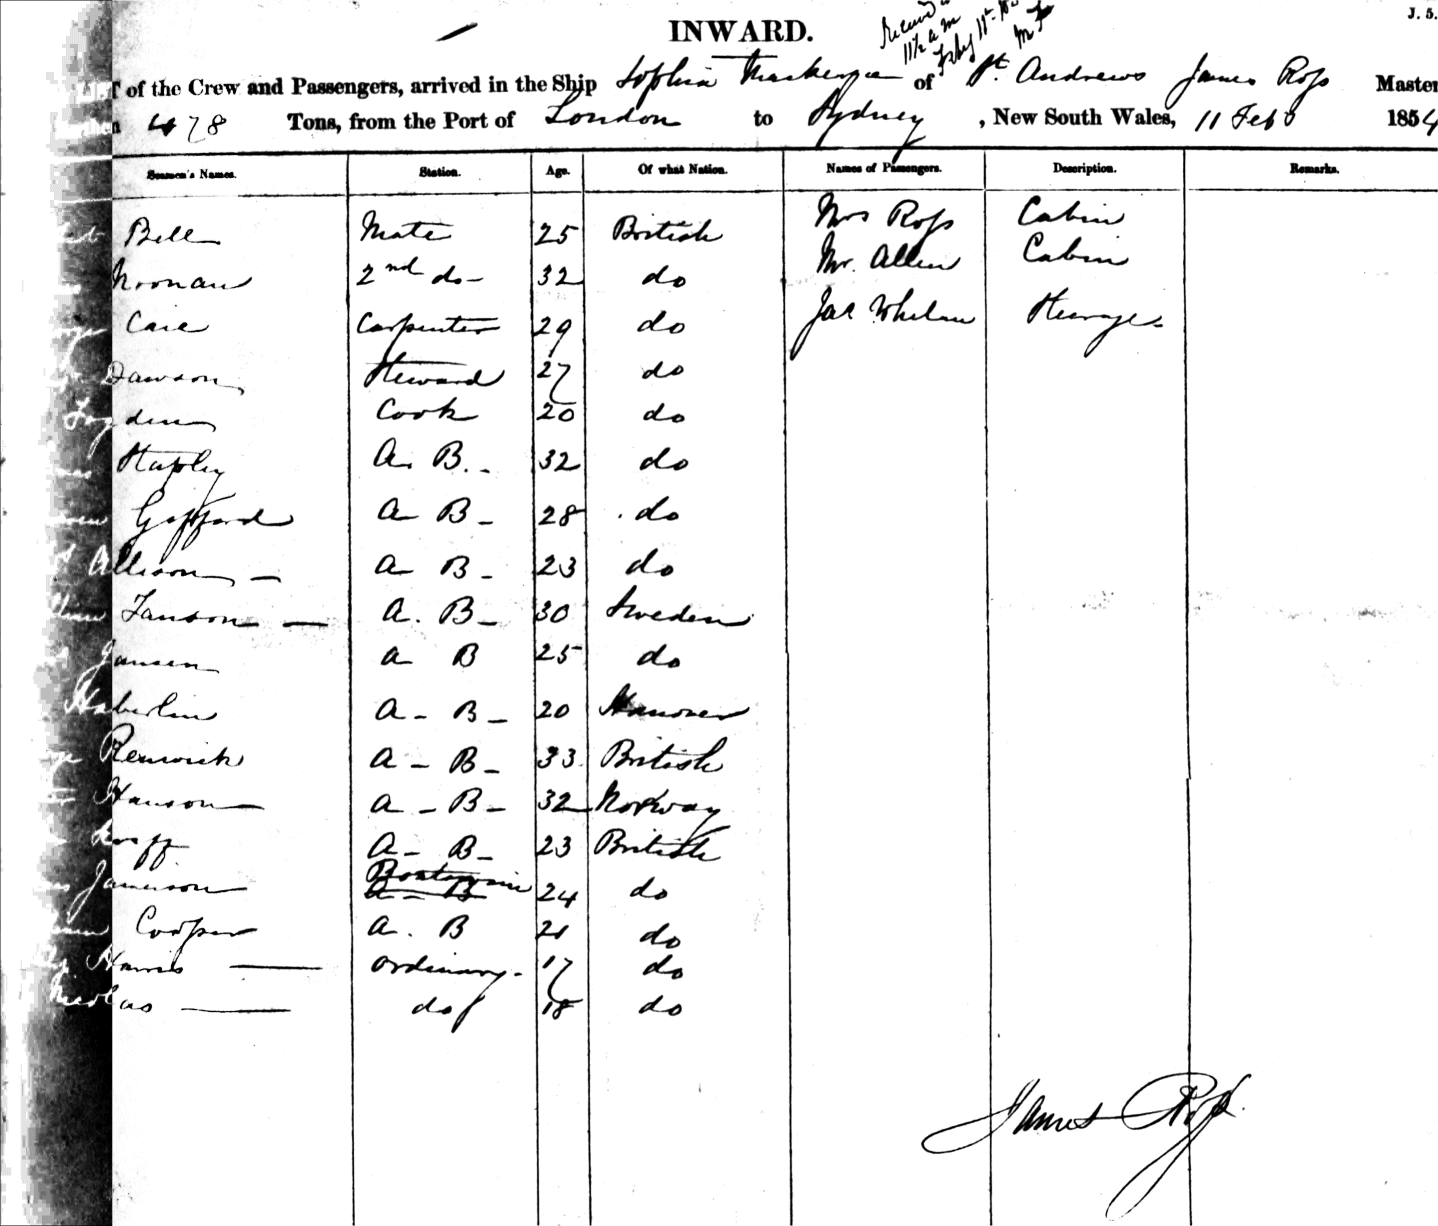 J. 5.
INWARD.
11½ a m
LIST of the Crew and Passengers, arrived in the Ship Sophia Mackenzie of St. Andrews James Ross Master
Burthen 478 Tons, from the Port of London to Sydney, New South Wales, 11 Feb 1854
Seamen's Names. Station. Age. Of what Nation. Names of Passengers. Description. Remarks.
Bell Mate 25 British Mrs Ross Cabin
Noonan 2nd do 32 do Mr. Allen Cabin
Carpenter 29 do Jas Whelan Steerage
Dawson Steward 27 do
Cook 20 do
Stapley A. B. 32 do
A B 28 do
Allison A B 23 do
A. B 30 Sweden
Jansen A B 25 do
Haberlin A B 20 Hanover
Renwick A B 33 British
Hanson A B 32 Norway
A B 23 British
Jameson Boatswain A B 24 do
Cooper A. B 21 do
Harris Ordinary 17 do
Nicolas do 18 do
James Ross